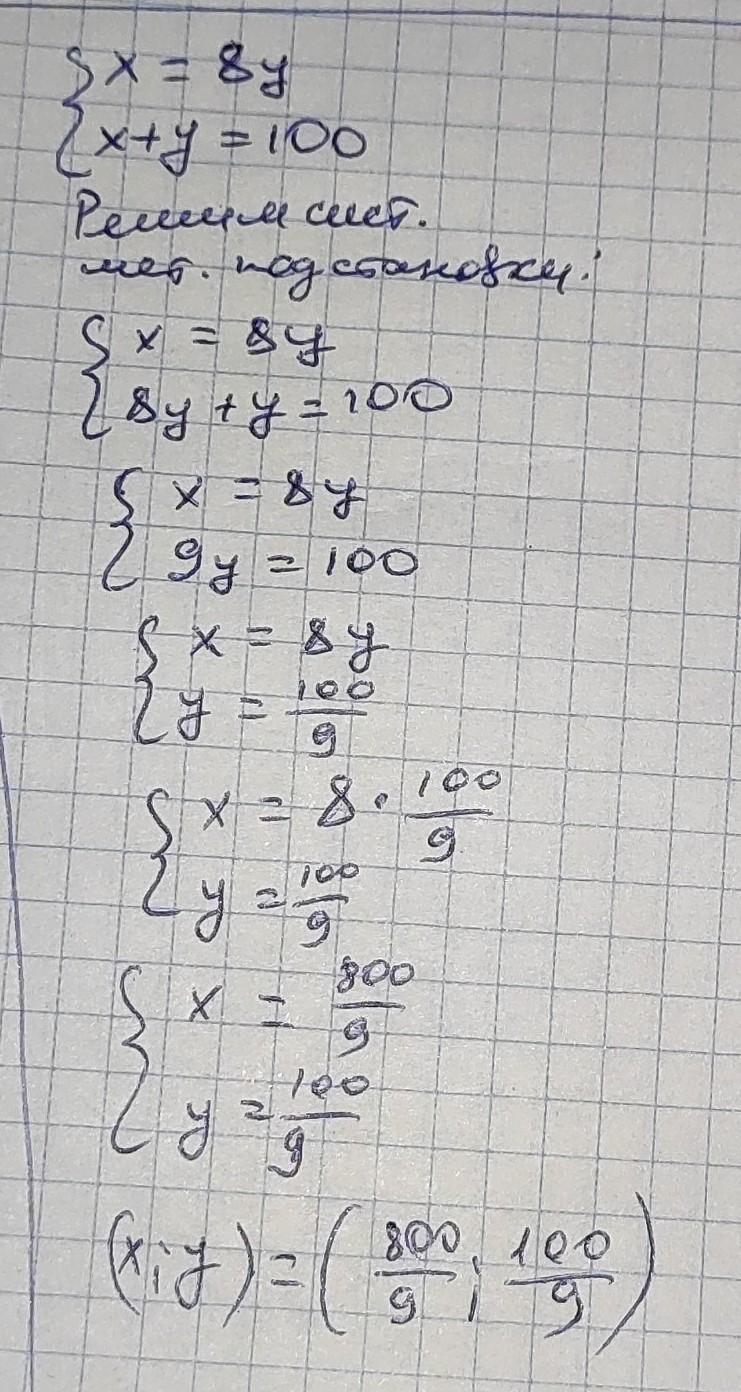 { x = 8y
x+y = 100
Решим сист.
мет. подстановки:
{ x = 8y
8y + y = 100
{ x = 8y
9y = 100
{ x = 8y
y = 100/9
{ x = 8 · 100/9
y = 100/9
{ x = 800/9
y = 100/9
(x;y) = (800/9; 100/9)